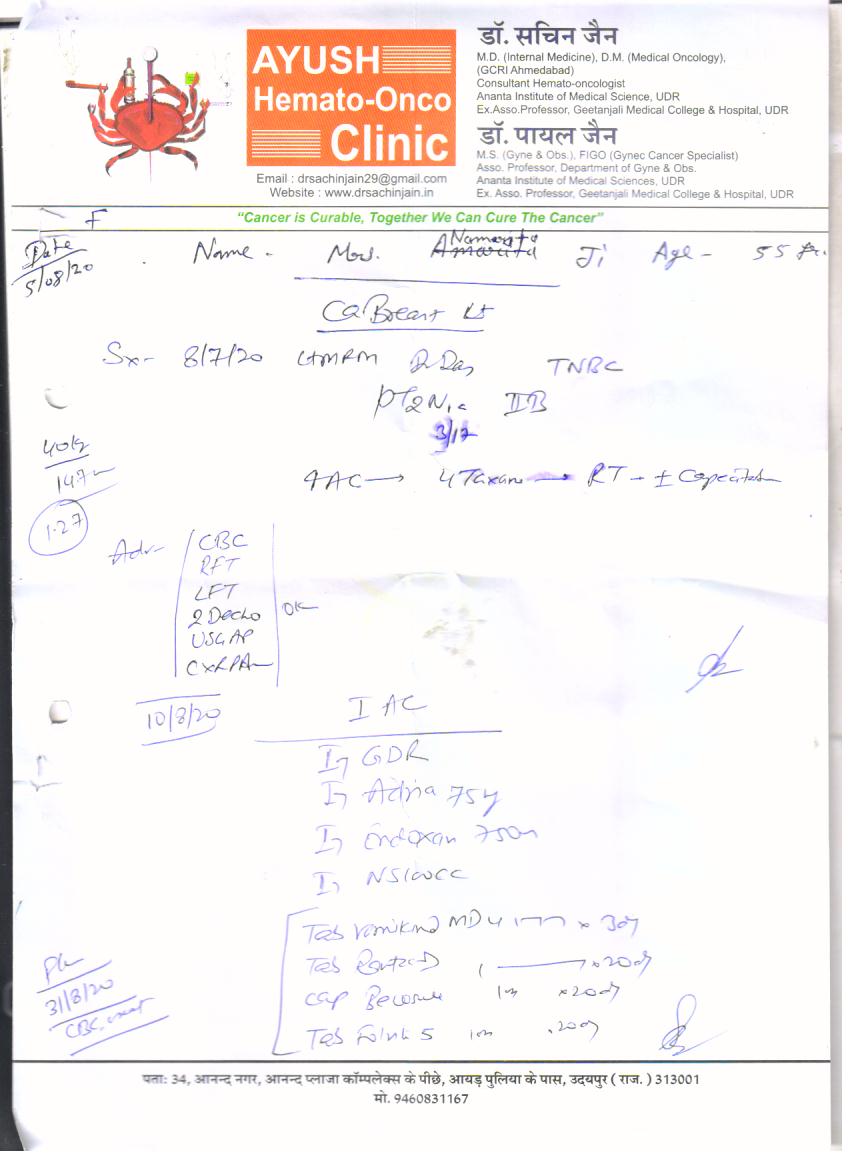 AYUSH
Hemato-Onco
Clinic
Email : drsachinjain29@gmail.com
Website : www.drsachinjain.in
डॉ. सचिन जैन
M.D. (Internal Medicine), D.M. (Medical Oncology),
(GCRI Ahmedabad)
Consultant Hemato-oncologist
Ananta Institute of Medical Science, UDR
Ex.Asso.Professor, Geetanjali Medical College & Hospital, UDR
डॉ. पायल जैन
M.S. (Gyne & Obs.), FIGO (Gynec Cancer Specialist)
Asso. Professor, Department of Gyne & Obs.
Ananta Institute of Medical Sciences, UDR
Ex. Asso. Professor, Geetanjali Medical College & Hospital, UDR
"Cancer is Curable, Together We Can Cure The Cancer"
F
Date
5/08/20
Name - Mrs. Namrata Ji Age - 55 yr.
Ca Breast Lt
Sx- 8/7/20 LtMRM TNBC
pT2N1a IIB
3/17
40kg
147
1.27
4AC → 4 Taxane → RT - ±
Adv-
CBC
RFT
LFT
2Decho
USG AP
CXRPA
OK
10/8/20
I AC
Inj GDR
Inj Adria 75
Inj Endoxan 750
Inj NS100CC
Tab MD 4 x 3
Tab 1 x 20
Cap 1 x 20
Tab 5 20
31/8/20
CBC,
पता: 34, आनन्द नगर, आनन्द प्लाजा कॉम्पलेक्स के पीछे, आयड़ पुलिया के पास, उदयपुर ( राज. ) 313001
मो. 9460831167